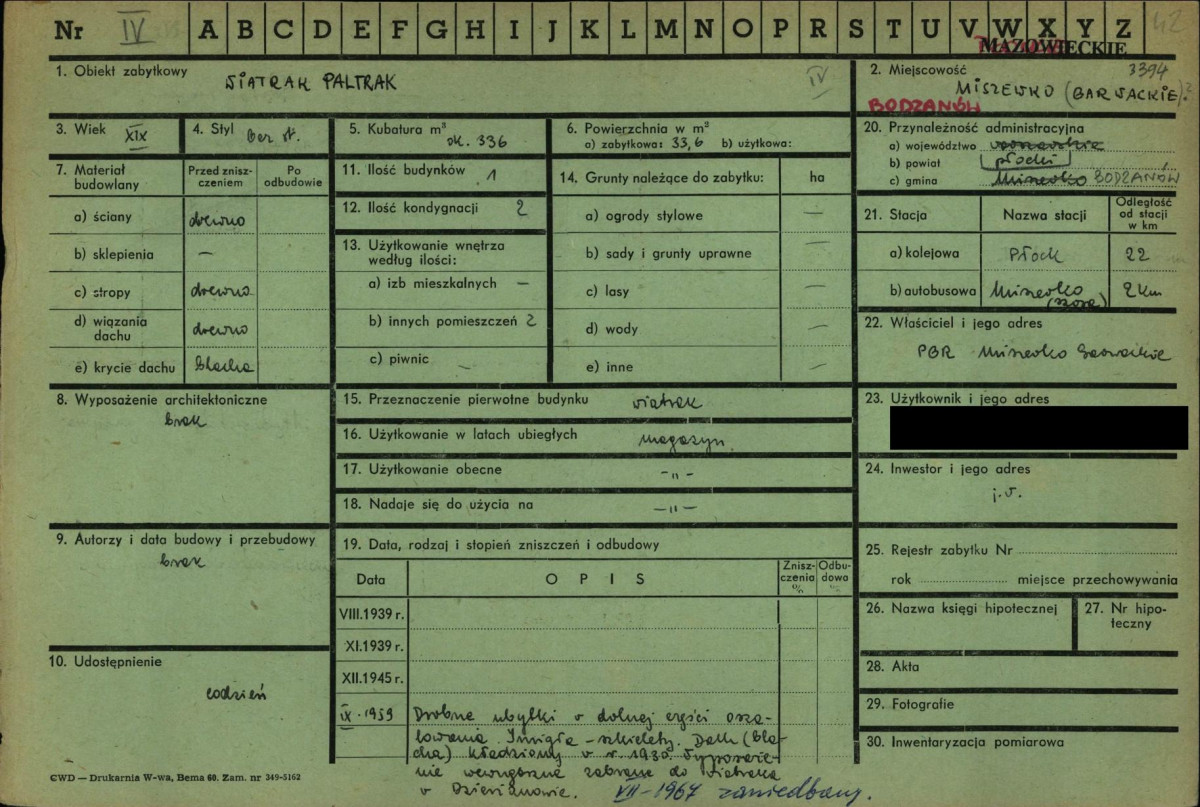 Nr IV A B C D E F G H I J K L M N O P R S T U V W X Y Z 42
MAZOWIECKIE
1. Obiekt zabytkowy WIATRAK PALTRAK IV
2. Miejscowość 3394
MISZEWKO (GARWACKIE).
BODZANÓW
3. Wiek XIX
4. Styl bez st.
5. Kubatura m³ ok. 336
6. Powierzchnia w m²
a) zabytkowa: 33,6 b) użytkowa:
20. Przynależność administracyjna
a) województwo warszawskie
b) powiat płocki
c) gmina Miszewko BODZANÓW
7. Materiał budowlany
Przed zniszczeniem
Po odbudowie
a) ściany drewno
b) sklepienia —
c) stropy drewno
d) wiązania dachu drewno
e) krycie dachu blacha
11. Ilość budynków 1
12. Ilość kondygnacji 2
13. Użytkowanie wnętrza
według ilości:
a) izb mieszkalnych —
b) innych pomieszczeń 2
c) piwnic —
14. Grunty należące do zabytku: ha
a) ogrody stylowe —
b) sady i grunty uprawne —
c) lasy —
d) wody —
e) inne —
21. Stacja
Nazwa stacji
Odległość od stacji w km
a) kolejowa Płock 22
b) autobusowa Miszewko (szosa) 2 km
22. Właściciel i jego adres
PGR Miszewko Garwackie
8. Wyposażenie architektoniczne
brak
15. Przeznaczenie pierwotne budynku wiatrak
16. Użytkowanie w latach ubiegłych magazyn
17. Użytkowanie obecne -"-
18. Nadaje się do użycia na -"-
23. Użytkownik i jego adres
24. Inwestor i jego adres
j.w.
9. Autorzy i data budowy i przebudowy
brak
10. Udostępnienie
codzień
19. Data, rodzaj i stopień zniszczeń i odbudowy
Data OPIS Zniszczenia % Odbudowa %
VIII.1939 r.
XI.1939 r.
XII.1945 r.
IX.1959 Drobne ubytki w dolnej części osza-
lowania. Śmigła - szkielety. Dach (bla-
cha) kładziony w r. 1930. Wyposaże-
nie wewnętrzne zabrane do wiatraka
w
VII-1967 zaniedbany.
25. Rejestr zabytku Nr
rok miejsce przechowywania
26. Nazwa księgi hipotecznej
27. Nr hipo-
teczny
28. Akta
29. Fotografie
30. Inwentaryzacja pomiarowa
CWD — Drukarnia W-wa, Bema 60. Zam. nr 349-5162